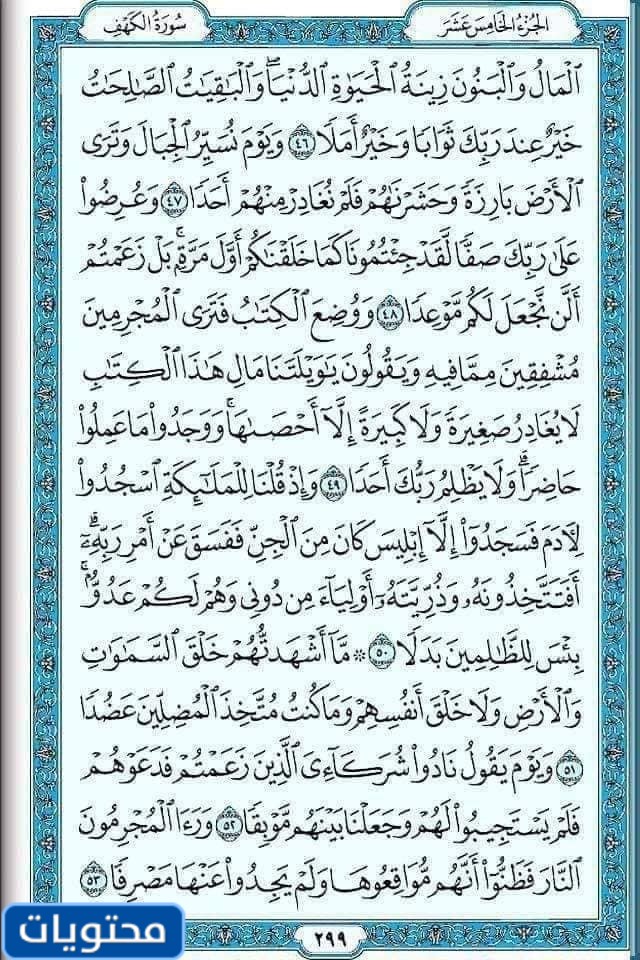 الجزء الخامس عشر
سورة الكهف
الْمَالُ وَالْبَنُونَ زِينَةُ الْحَيَوٰةِ الدُّنْيَاۖ وَالْبَٰقِيَٰتُ الصَّٰلِحَٰتُ
خَيْرٌ عِندَ رَبِّكَ ثَوَابًا وَخَيْرٌ أَمَلًا ٤٦ وَيَوْمَ نُسَيِّرُ الْجِبَالَ وَتَرَى
الْأَرْضَ بَارِزَةً وَحَشَرْنَٰهُمْ فَلَمْ نُغَادِرْ مِنْهُمْ أَحَدًا ٤٧ وَعُرِضُوا
عَلَىٰ رَبِّكَ صَفًّا لَّقَدْ جِئْتُمُونَا كَمَا خَلَقْنَٰكُمْ أَوَّلَ مَرَّةٍۚ بَلْ زَعَمْتُمْ
أَلَّن نَّجْعَلَ لَكُم مَّوْعِدًا ٤٨ وَوُضِعَ الْكِتَٰبُ فَتَرَى الْمُجْرِمِينَ
مُشْفِقِينَ مِمَّا فِيهِ وَيَقُولُونَ يَٰوَيْلَتَنَا مَالِ هَٰذَا الْكِتَٰبِ
لَا يُغَادِرُ صَغِيرَةً وَلَا كَبِيرَةً إِلَّا أَحْصَىٰهَاۚ وَوَجَدُوا مَا عَمِلُوا
حَاضِرًاۗ وَلَا يَظْلِمُ رَبُّكَ أَحَدًا ٤٩ وَإِذْ قُلْنَا لِلْمَلَٰٓئِكَةِ اسْجُدُوا
لِأٓدَمَ فَسَجَدُوٓا إِلَّآ إِبْلِيسَ كَانَ مِنَ الْجِنِّ فَفَسَقَ عَنْ أَمْرِ رَبِّهِۦٓۗ
أَفَتَتَّخِذُونَهُۥ وَذُرِّيَّتَهُۥٓ أَوْلِيَآءَ مِن دُونِي وَهُمْ لَكُمْ عَدُوٌّۢۚ
بِئْسَ لِلظَّٰلِمِينَ بَدَلًا ٥٠ ۞ مَّآ أَشْهَدتُّهُمْ خَلْقَ السَّمَٰوَٰتِ
وَالْأَرْضِ وَلَا خَلْقَ أَنفُسِهِمْ وَمَا كُنتُ مُتَّخِذَ الْمُضِلِّينَ عَضُدًا
٥١ وَيَوْمَ يَقُولُ نَادُوا شُرَكَآءِيَ الَّذِينَ زَعَمْتُمْ فَدَعَوْهُمْ
فَلَمْ يَسْتَجِيبُوا لَهُمْ وَجَعَلْنَا بَيْنَهُم مَّوْبِقًا ٥٢ وَرَءَا الْمُجْرِمُونَ
النَّارَ فَظَنُّوٓا أَنَّهُم مُّوَاقِعُوهَا وَلَمْ يَجِدُوا عَنْهَا مَصْرِفًا ٥٣
محتويات
٢٩٩